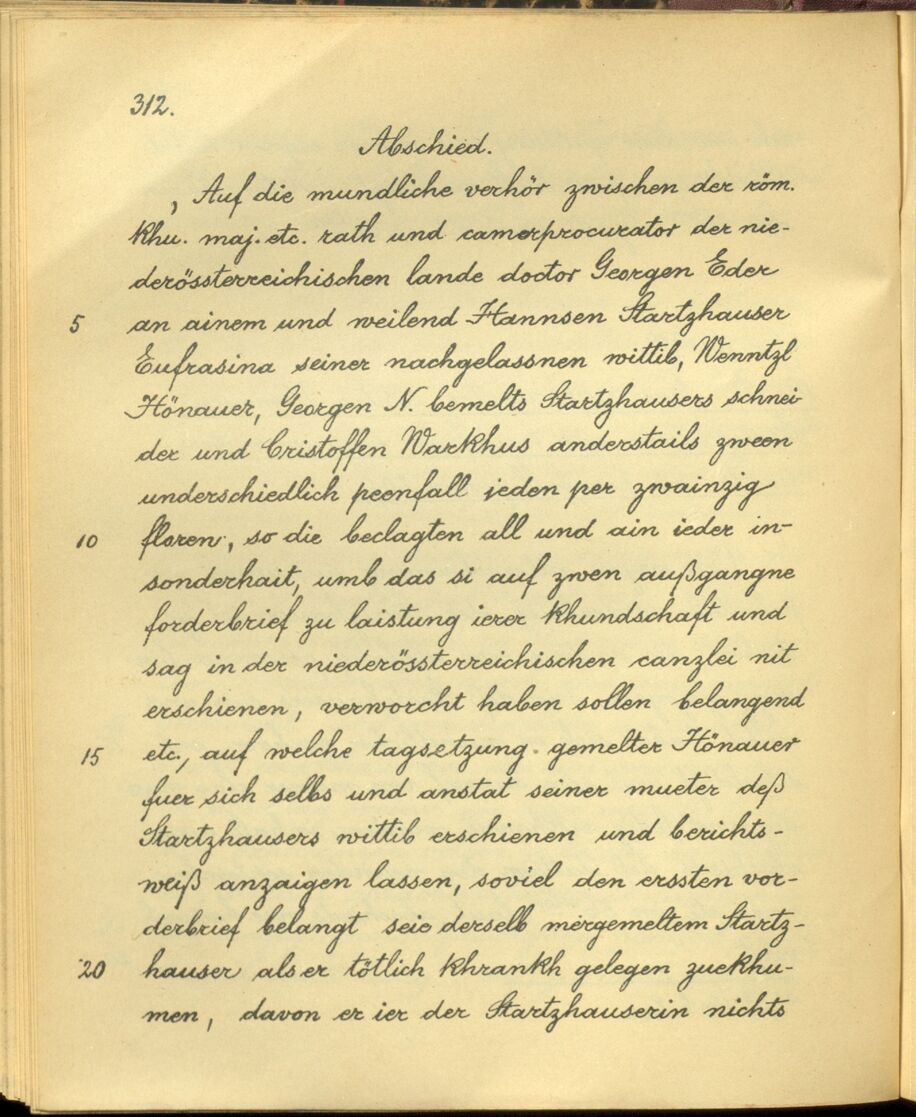 312.
Abschied.
, Auf die mundliche verhör zwischen der röm.
khu. maj. etc. rath und camerprocurator der nie-
derössterreichischen lande doctor Georgen Eder
5 an ainem und weilend Hannsen Startzhauser
Eufrasina seiner nachgelassnen wittib, Wenntzl
Hönauer, Georgen N. bemelts Startzhausers schnei-
der und Cristoffen Warkhus anderstails zween
underschiedlich peenfall jeden per zwainzig
10 floren, so die beclagten all und ain ieder in-
sonderhait, umb das si auf zwen außgangne
forderbrief zu laistung ierer khundschaft und
sag in der niederössterreichischen canzlei nit
erschienen, verworcht haben sollen belangend
15 etc., auf welche tagsetzung gemelter Hönauer
fuer sich selbs und anstat seiner mueter deß
Startzhausers wittib erschienen und berichts-
weiß anzaigen lassen, soviel den erssten vor-
derbrief belangt seie derselb mergemeltem Startz-
20 hauser als er tötlich khrankh gelegen zuekhu-
men, davon er ier der Startzhauserin nichts